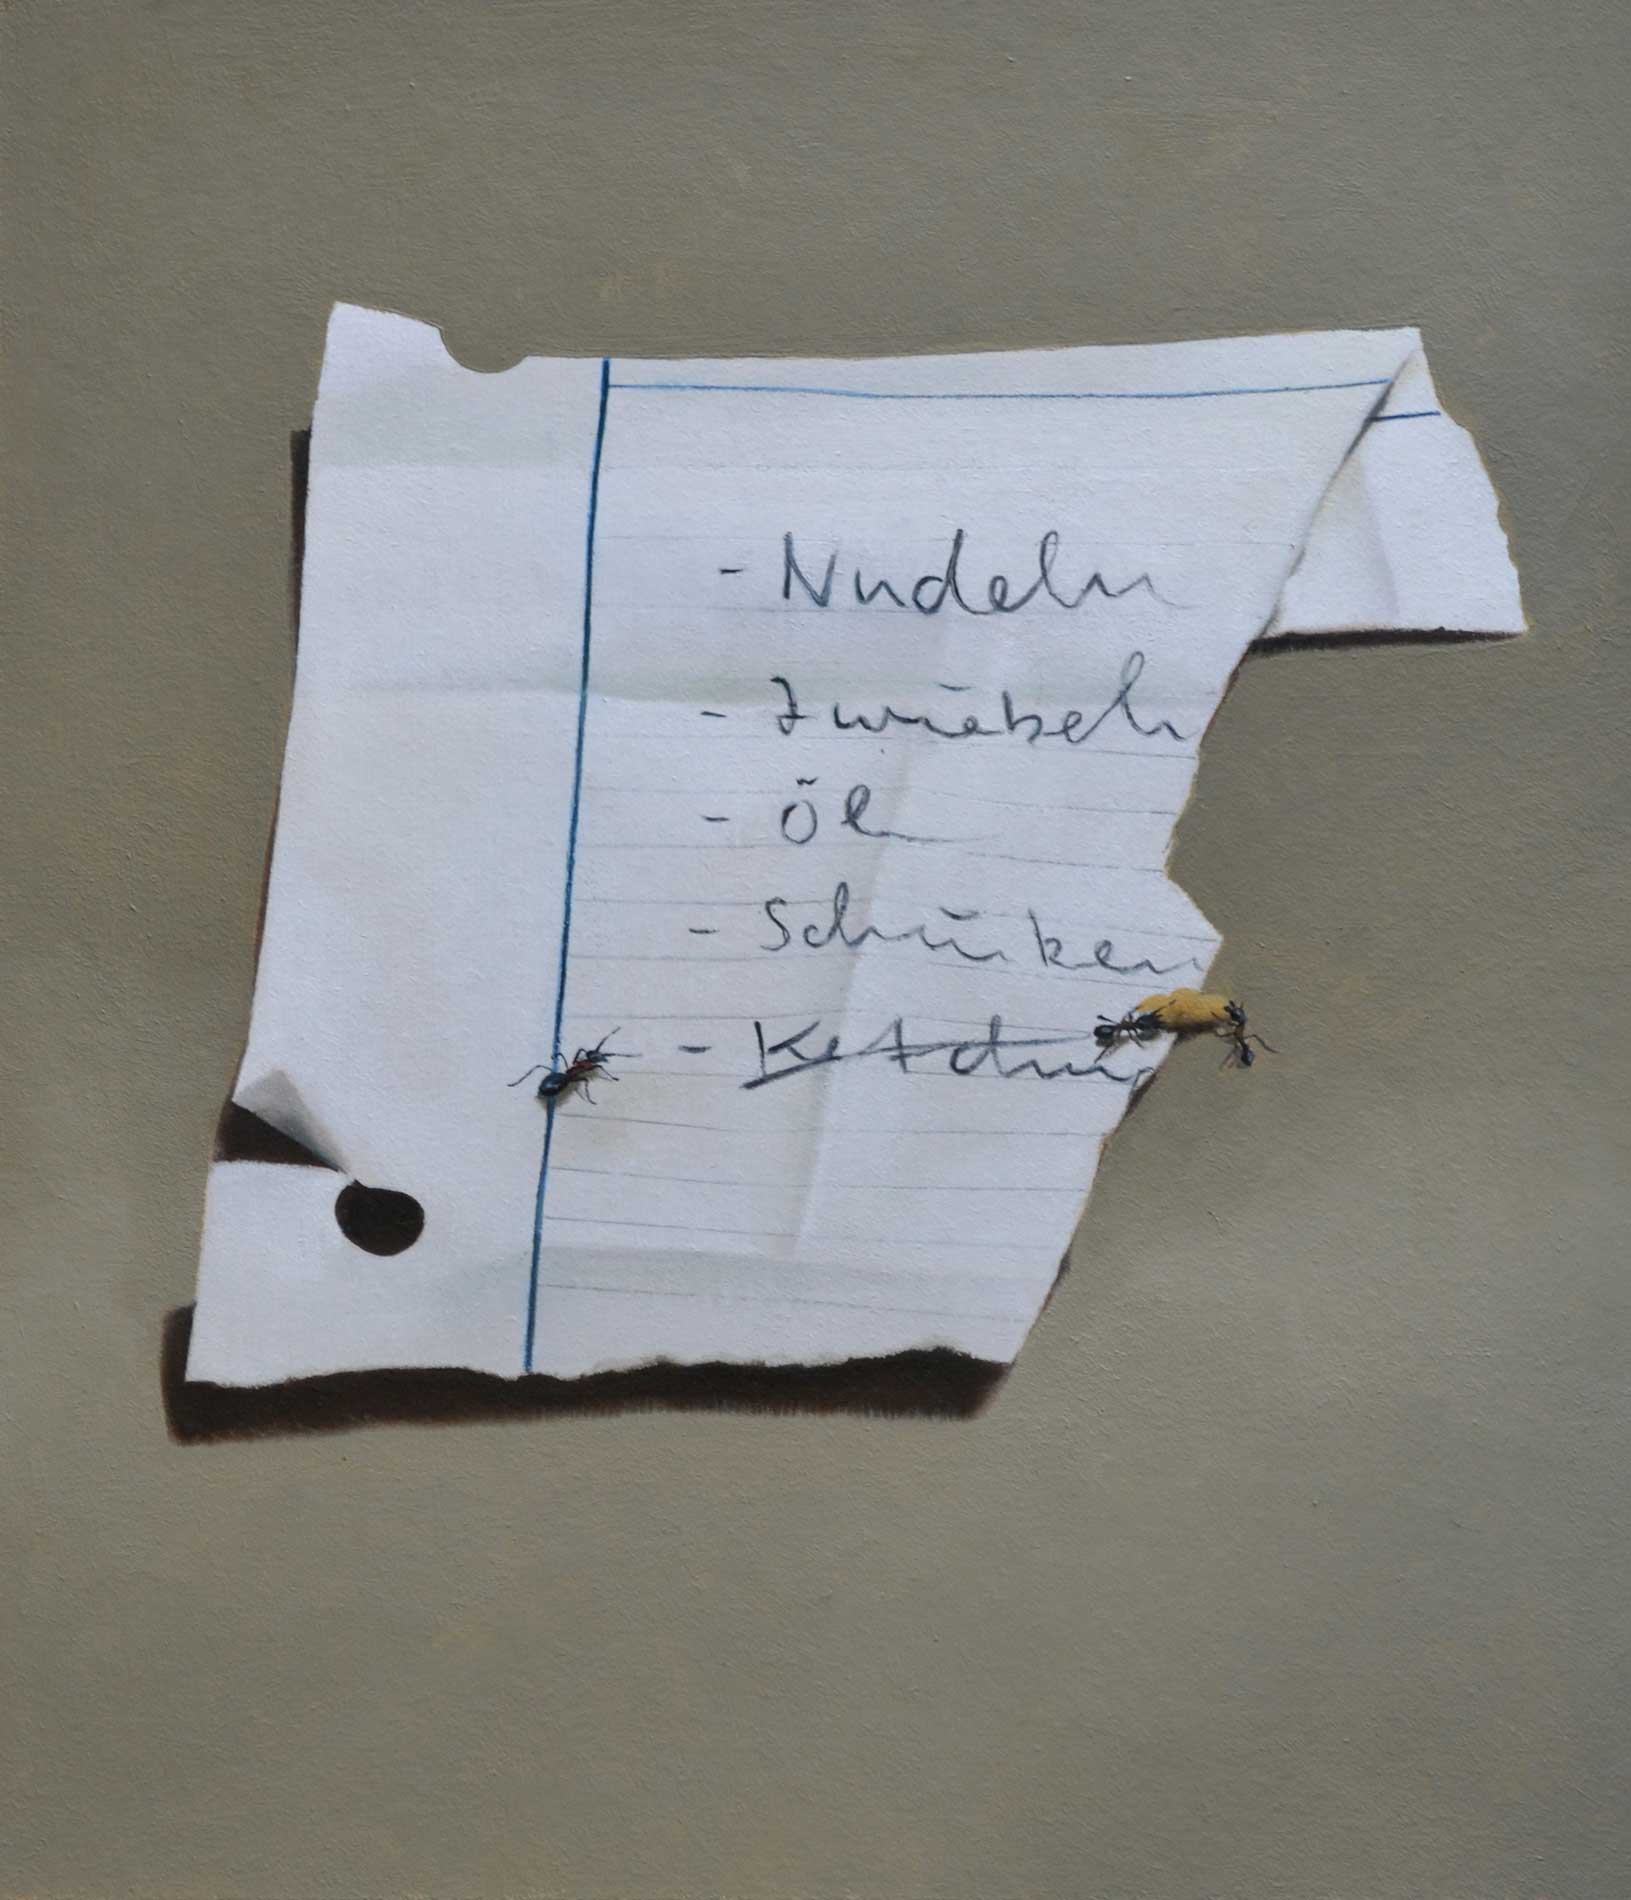 - Nudeln
- Zwiebeln
- Öl
- Schinken
- Ketchup